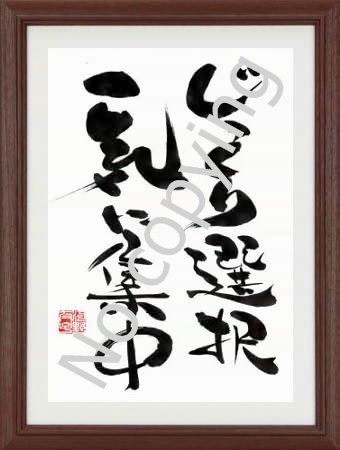 じっくり選択
一気に集中
No copying